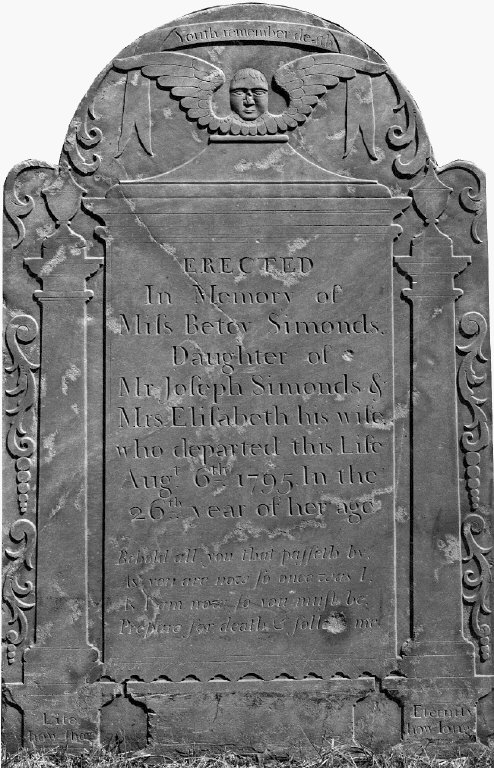 Youth remember death
ERECTED
In Memory of
Miſs Betcy Simonds.
Daughter of
Mr. Joſeph Simonds &
Mrs. Eliſabeth his wife,
who departed this Life
Augt. 6th. 1795. In the
26th. year of her age
Behold all you that paſseth by,
As you are now ſo once was I,
As I am now, ſo you muſt be,
Prepare for death & follow me.
Life
how short
Eternity
how long